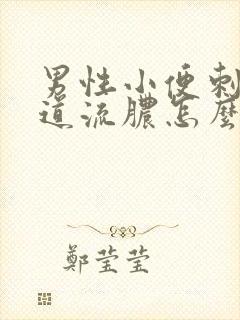 男性小便刺
道流膿怎麼
鄭莹莹